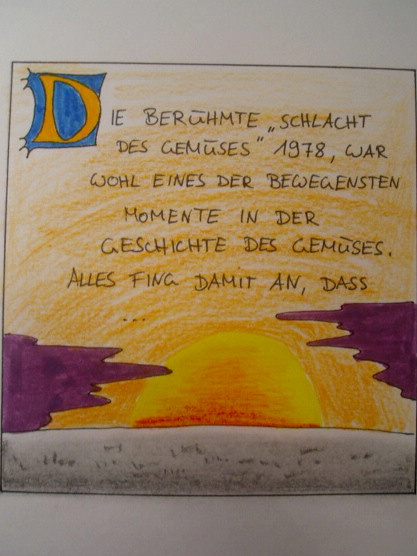 DIE BERÜHMTE „SCHLACHT
DES GEMÜSES" 1978, WAR
WOHL EINES DER BEWEGENSTEN
MOMENTE IN DER
GESCHICHTE DES GEMÜSES.
ALLES FING DAMIT AN, DASS
...